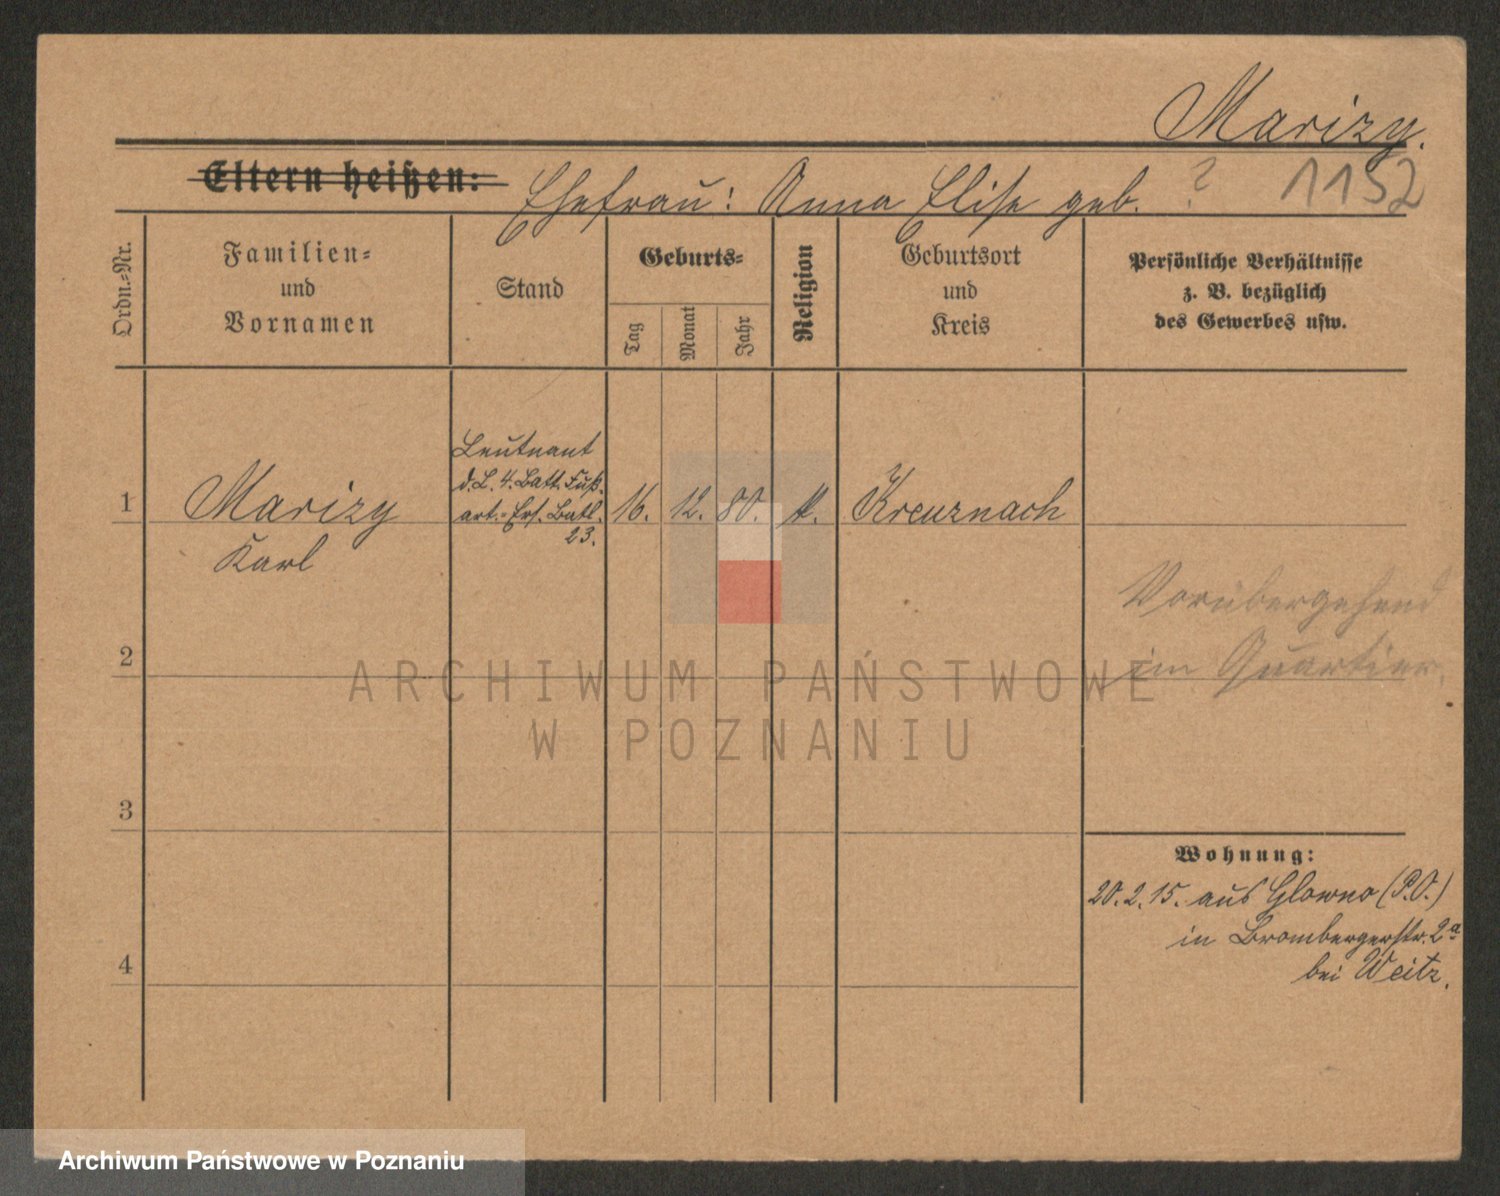 Marizy.
Eltern heißen: Ehefrau: Anna Elise geb. ? 1152
Ordn.-Nr.
Familien-
und
Vornamen
Stand
Geburts-
Tag
Monat
Jahr
Religion
Geburtsort
und
Kreis
Persönliche Verhältnisse
z. B. bezüglich
des Gewerbes usw.
Leutnant
d. L. 4. Batt. Fuß-
art.-Ers. Batl.
23.
1 Marizy 16. 12. 80. k. Kreuznach
Karl
Vorübergehend
im Quartier.
2
3
4
Wohnung:
20.2.15. aus Glowno (P.O.)
in Brombergerstr. 2a
bei Weitz.
ARCHIWUM PAŃSTWOWE
W POZNANIU
Archiwum Państwowe w Poznaniu